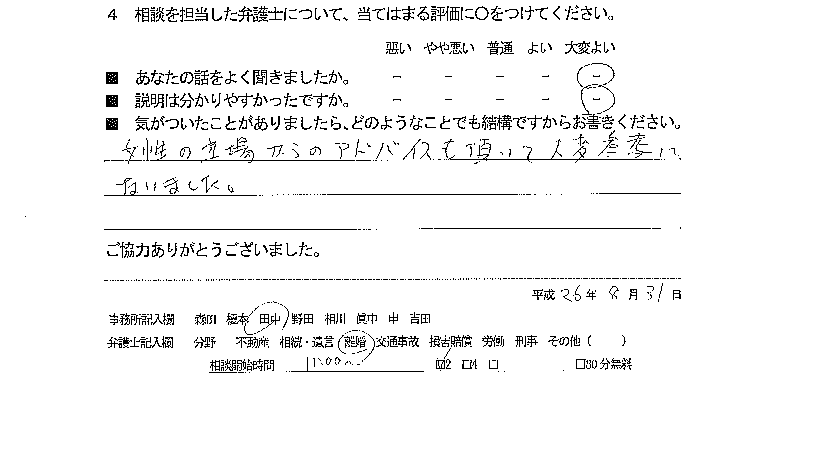 4 相談を担当した弁護士について、当てはまる評価に〇をつけてください。
悪い やや悪い 普通 よい 大変よい
■ あなたの話をよく聞きましたか。 － － － － －
■ 説明は分かりやすかったですか。 － － － － －
■ 気がついたことがありましたら、どのようなことでも結構ですからお書きください。
女性の立場からのアドバイスも頂いて大変参考に
なりました。
ご協力ありがとうございました。
平成 26年 8月 31日
事務所記入欄 森田 榎本 田中 野田 相川 眞中 申 吉田
弁護士記入欄 分野 不動産 相続・遺言 離婚 交通事故 損害賠償 労働 刑事 その他（ ）
相談開始時間 □2 □4 □ □30分無料